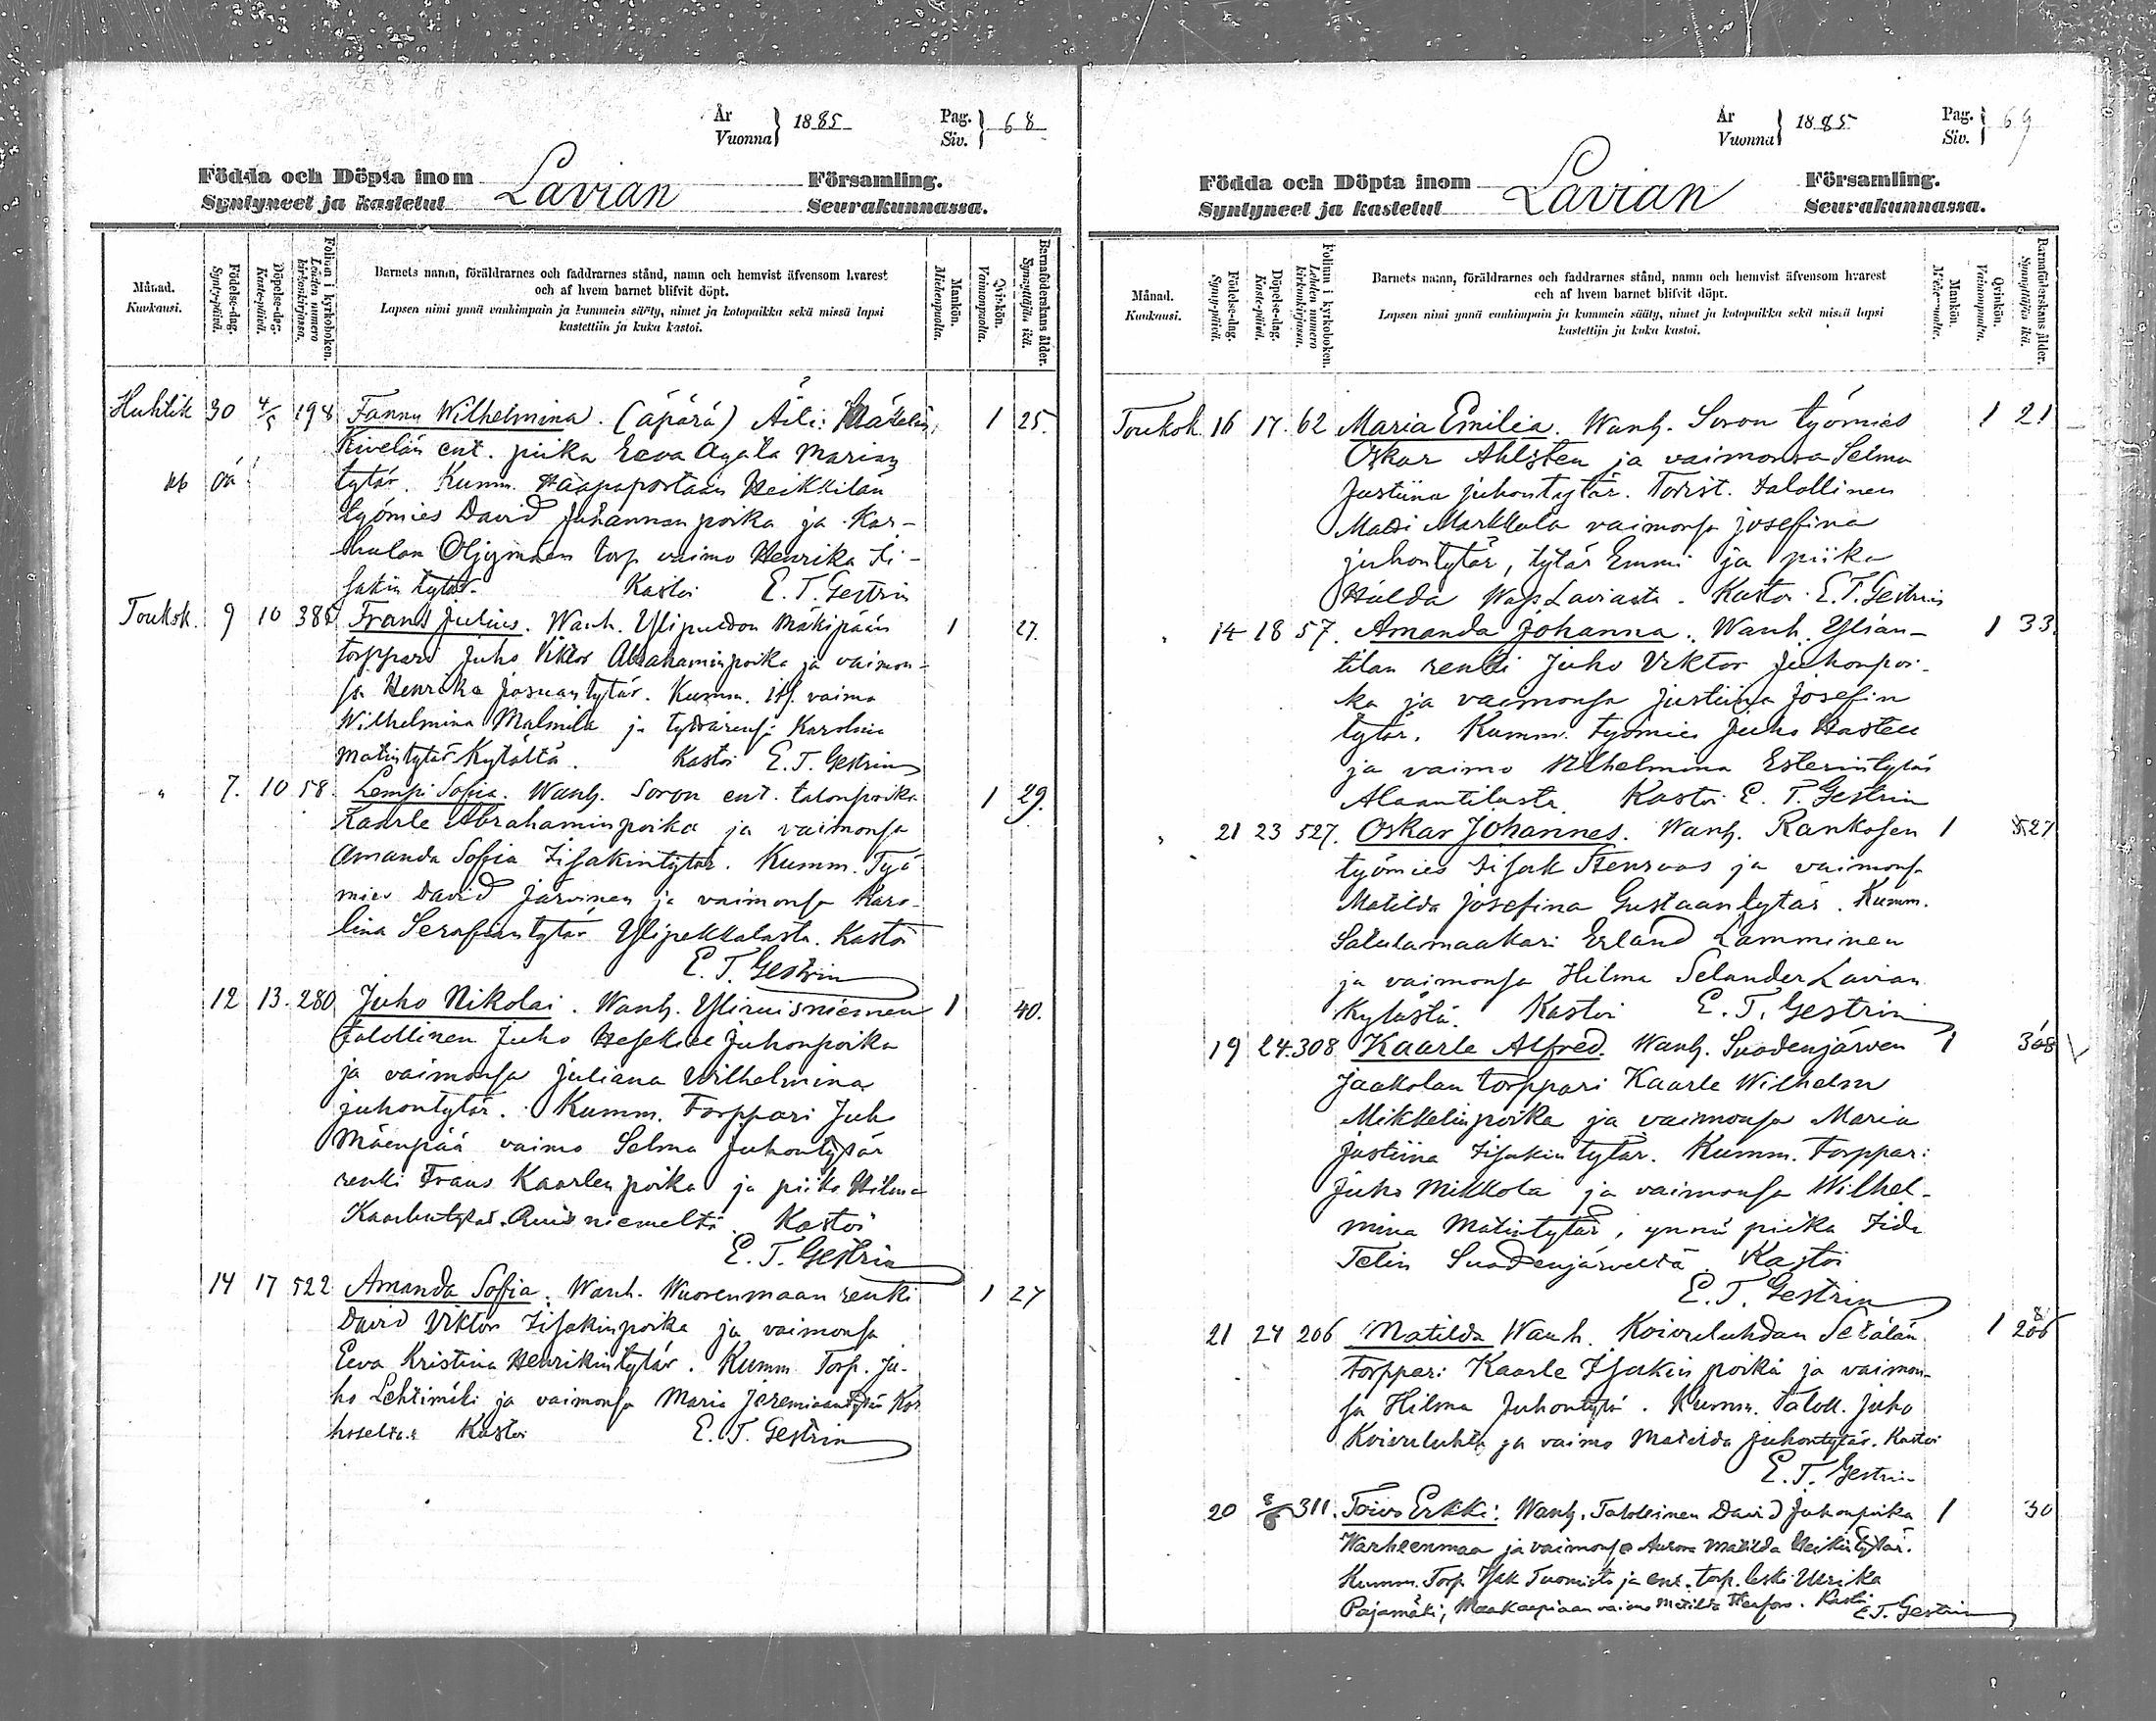 År
Vuonna } 1885
Pag.
Siv. } 68
Födda och Döpta inom Lavian Församling.
Syntyneet ja kastetut Seurakunnassa.
Månad.
Kuukausi.
Födelse-dag.
Synty-päivä.
Döpelse-dag.
Kaste-päivä.
Folium i kyrkoboken.
Lehden numero kirkonkirjassa.
Barnets namn, föräldrarnes och faddrarnes stånd, namn och hemvist äfvensom hvarest
och af hvem barnet blifvit döpt.
Lapsen nimi ynnä vanhimpain ja kummein sääty, nimet ja kotopaikka sekä missä lapsi
kastettiin ja kuka kastoi.
Mankön.
Miehenpuolta.
Qvinkön.
Vaimonpuolta.
Barnaföderskans ålder.
Synnyttäjän ikä.
Huhtik 30 4/5 198 Fanny Wilhelmina. (äpärä) Äiti: 1 25.
Kivelän ent. piika Eeva Agata Marian
tytär. Kumm. Haapaportaan Heikkilän
työmies David Juhannan poika ja Kar-
hulan Öljymäen torp vaimo Henrika Ii-
sakin tytär. Kastoi E. T. Gestrin
Toukok. 9 10 Frans Julius. Wanh. Mäkipään 1 27.
torppari Juho Viktor Abrahaminpoika ja vaimon-
sa Henrika Josuantytär. Kumm. its. vaimo
Wilhelmina Malmila ja Karolina
Matintytär Kytältä. Kastoi E. T. Gestrin
" 7. 10 58. Lempi Sofia. Wanh. Soron ent. talonpoika 1 29.
Kaarle Abrahaminpoika ja vaimonsa
Amanda Sofia Iisakintytär. Kumm. Työ
mies David Järvinen ja vaimonsa Karo-
lina Serafiantytär Ylipekkalasta. Kastoi
E. T. Gestrin
12 13. 280 Juho Nikolai. Wanh. Yliruisniemen 1 40.
talollinen Juho Hesekiel Juhonpoika
ja vaimonsa Juliana Wilhelmina
Juhontytär. Kumm. Torppari Juh
Mäenpää vaimo Selma Juhontytär
renki Frans Kaarlen poika ja piika Hilma
Kaarlentytär Ruisniemeltä. Kastoi
E. T. Gestrin
14 17 522 Amanda Sofia. Wanh. Wuorenmaan renki 1 27
David Viktor Iisakinpoika ja vaimonsa
Eeva Kristina Henrikintytär. Kumm. Torp. Ju-
ho Lehtimäki ja vaimonsa Maria Jeremiaantytär Kor
Kastoi E. T. Gestrin
År
Vuonna } 1885
Pag.
Siv. } 69
Födda och Döpta inom Lavian Församling.
Syntyneet ja kastetut Seurakunnassa.
Månad.
Kuukausi.
Födelse-dag.
Synty-päivä.
Döpelse-dag.
Kaste-päivä.
Folium i kyrkoboken.
Lehden numero kirkonkirjassa.
Barnets namn, föräldrarnes och faddrarnes stånd, namn och hemvist äfvensom hvarest
och af hvem barnet blifvit döpt.
Lapsen nimi ynnä vanhimpain ja kummein sääty, nimet ja kotopaikka sekä missä lapsi
kastettiin ja kuka kastoi.
Mankön.
Miehenpuolta.
Qvinkön.
Vaimonpuolta.
Barnaföderskans ålder.
Synnyttäjän ikä.
Toukok 16 17. 62 Maria Emilia. Wanh. Soron työmies 1 21
Oskar Ahlsten ja vaimonsa Selma
Justiina Juhontytär. Todist. Talollinen
Matti Markkula vaimonsa Josefina
Juhontytär, tytär Emmi ja piika
Hulda Laviasta. Kastoi E. T. Gestrin
" 14 18 57. Amanda Johanna. Wanh. Ylian- 1 33.
tilan renki Juho Viktor Juhonpoi-
ka ja vaimonsa Justiina Josefin
tytär. Kumm. työmies Juho Hasten
ja vaimo Wilhelmina Esterintytär
Alaantilasta. Kastoi E. T. Gestrin
" 21 23 527. Oskar Johannes. Wanh. Rankosen 1 27
työmies Iisak Stenroos ja vaimonsa
Matilda Josefina Gustaantytär. Kumm.
Satulamaakari Erland Lamminen
ja vaimonsa Hilma Selander Lavian
kylästä. Kastoi E. T. Gestrin
19 24. 308 Kaarle Alfred. Wanh. Suodenjärven 1
Jaakolan torppari Kaarle Wilhelm
Mikkelinpoika ja vaimonsa Maria
Justiina Iisakintytär. Kumm. Torppari
Juho Mikkola ja vaimonsa Wilhel-
mina Matintytär, ynnä piika Iida
Telin Suodenjärveltä. Kastoi
E. T. Gestrin
21 24 206 Matilda Wanh. Koivuluhdan Setälän 1
torppari Kaarle Iisakin poika ja vaimon-
sa Hilma Juhontytär. Kumm. Taloll. Juho
Koivuluhta ja vaimo Matilda Juhontytär. Kastoi
E. T. Gestrin
20 311. Toivo Erkki: Wanh. Talollinen David Juhonpoika 1 30
Warheenmaa ja vaimonsa Aurora Matilda Heikintytär.
Kumm. Torp. Isak Tuomisto ja ent. torp. leski Ulrika
Pajamäki, vaimo Matilda. Kastoi E. T. Gestrin